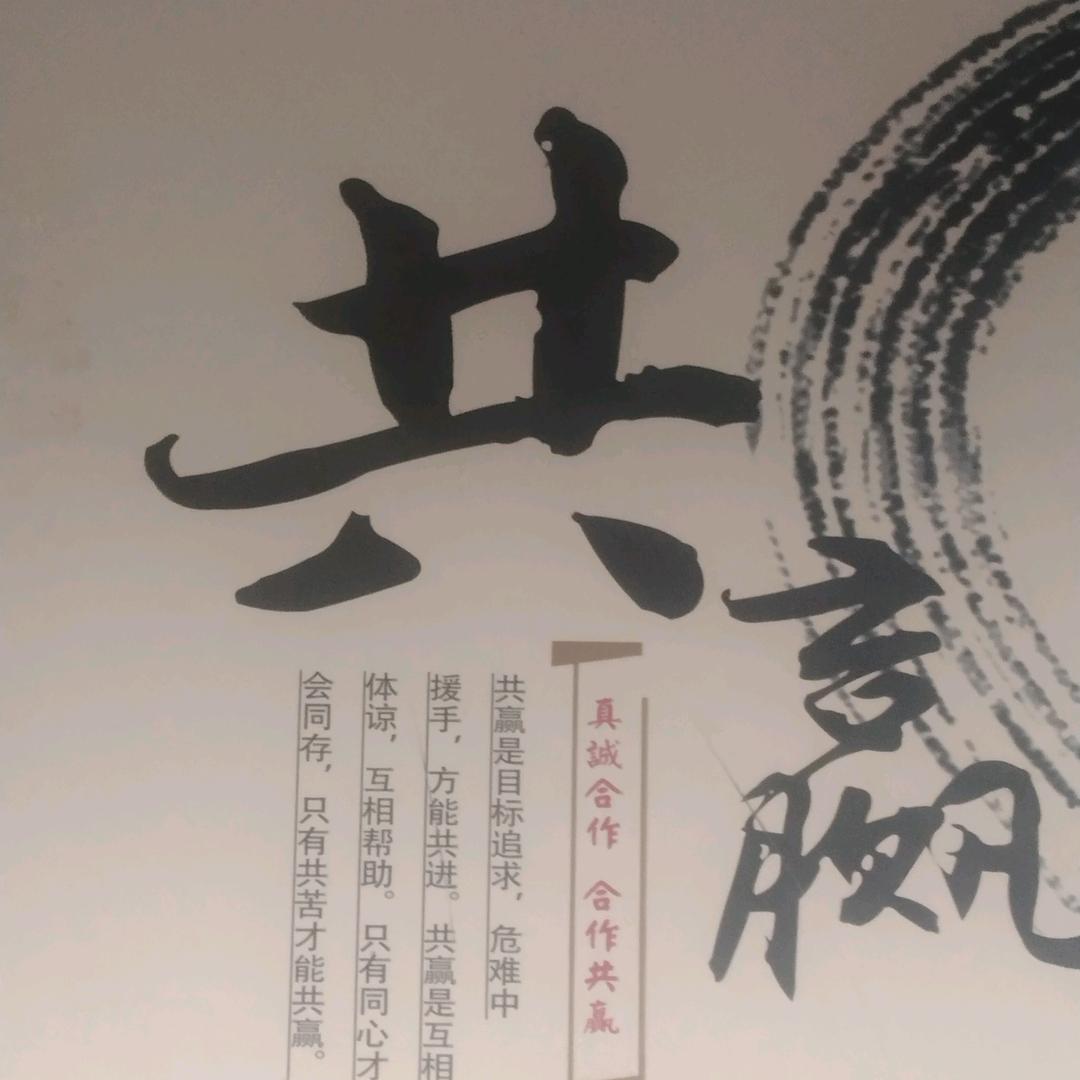 共赢
真誠合作 合作共贏
共赢是目标追求，危难中
援手，方能共进。共赢是互相
体谅，互相帮助。只有同心才
会同存，只有共苦才能共赢。